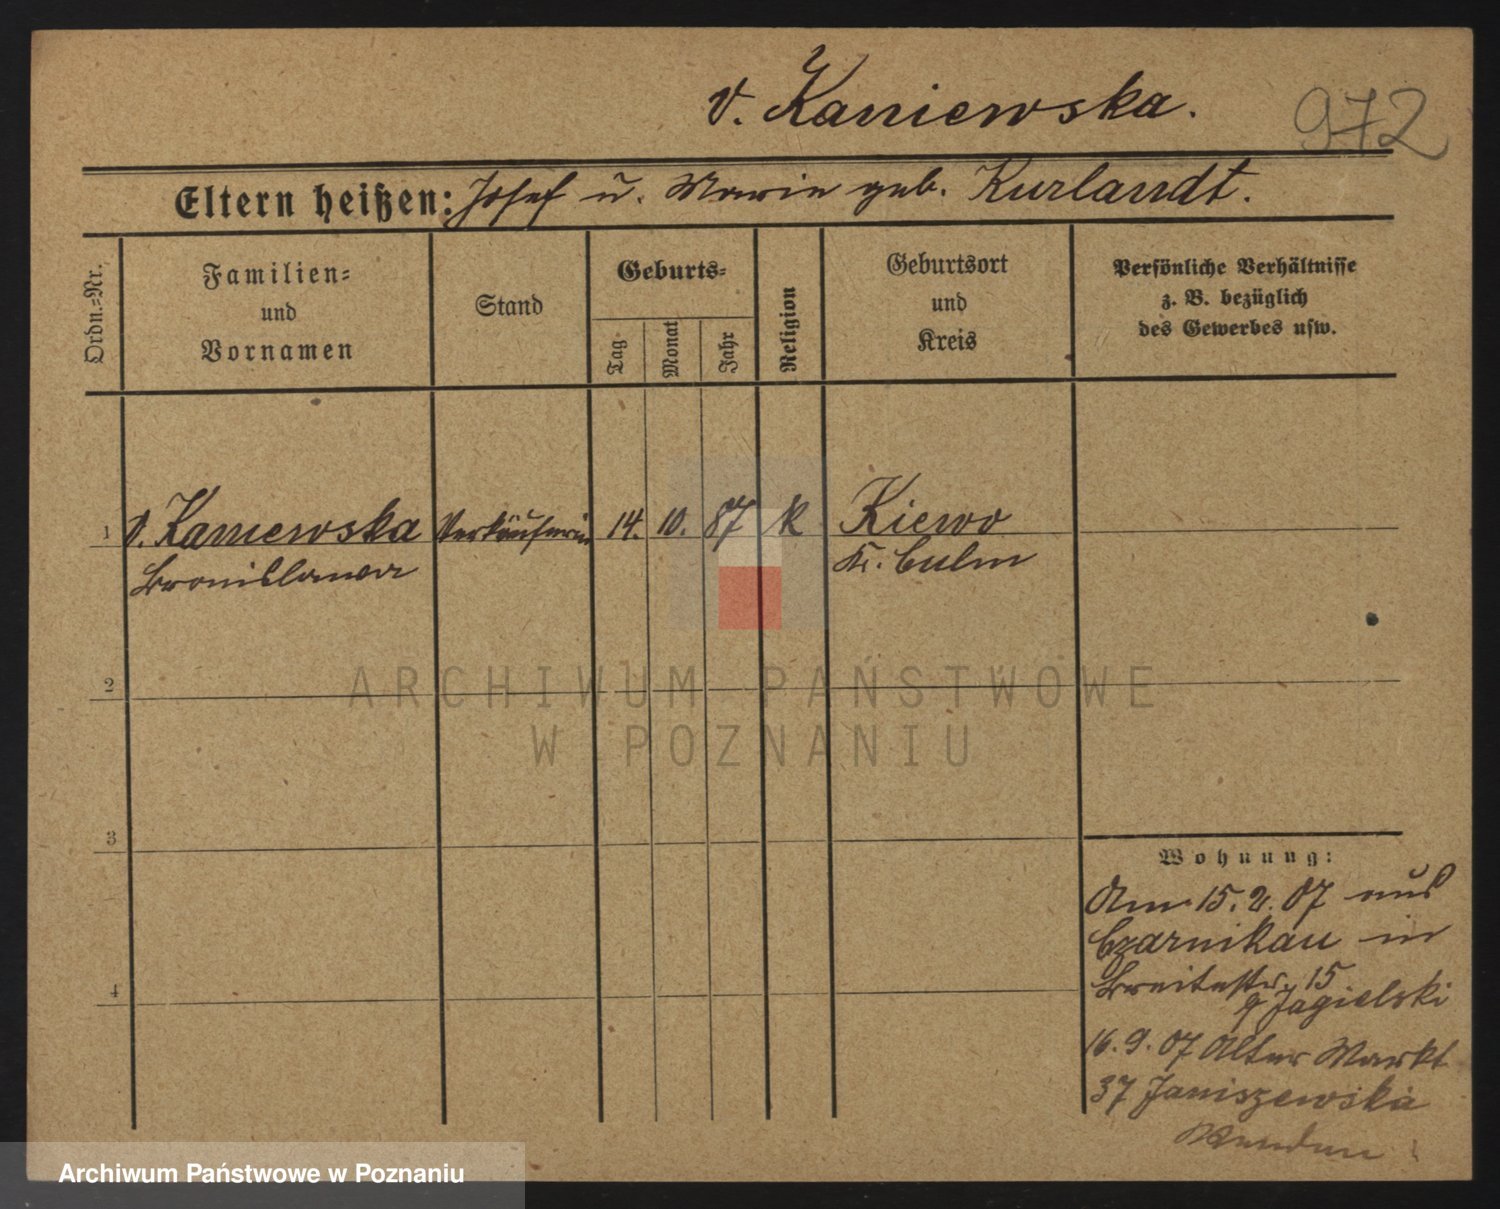 v. Kaniewska.
972
Eltern heißen: Josef u. Marie geb. Kurlandt.
Ordn.=Nr.
Familien=
und
Vornamen
Stand
Geburts=
Tag
Monat
Jahr
Religion
Geburtsort
und
Kreis
Persönliche Verhältnisse
z. B. bezüglich
des Gewerbes usw.
1 v. Kaniewska Verkäuferin 14. 10. 87 k Kiewo
Bronislawa Kr. Culm
2
ARCHIWUM PAŃSTWOWE
W POZNANIU
3
Wohnung:
Am 15. 2. 07 aus
Czarnikau in
4
Breitestr. 15
b Jagielski
16. 9. 07 Alter Markt
37 Janiszewska
Archiwum Państwowe w Poznaniu